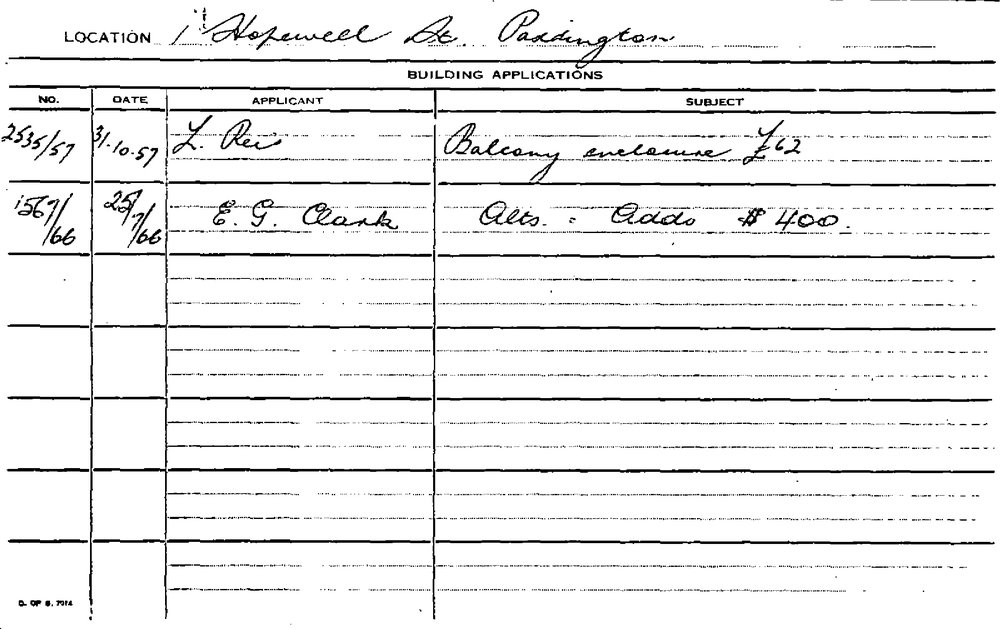 LOCATION 1 Hopewell St. Paddington
BUILDING APPLICATIONS
NO. DATE APPLICANT SUBJECT
2535/57 31.10.57 L. Rei Balcony enclosure £62
1567/66 25/7/66 E. G. Clark Alts. : Adds $400.
D. OF B. 7914